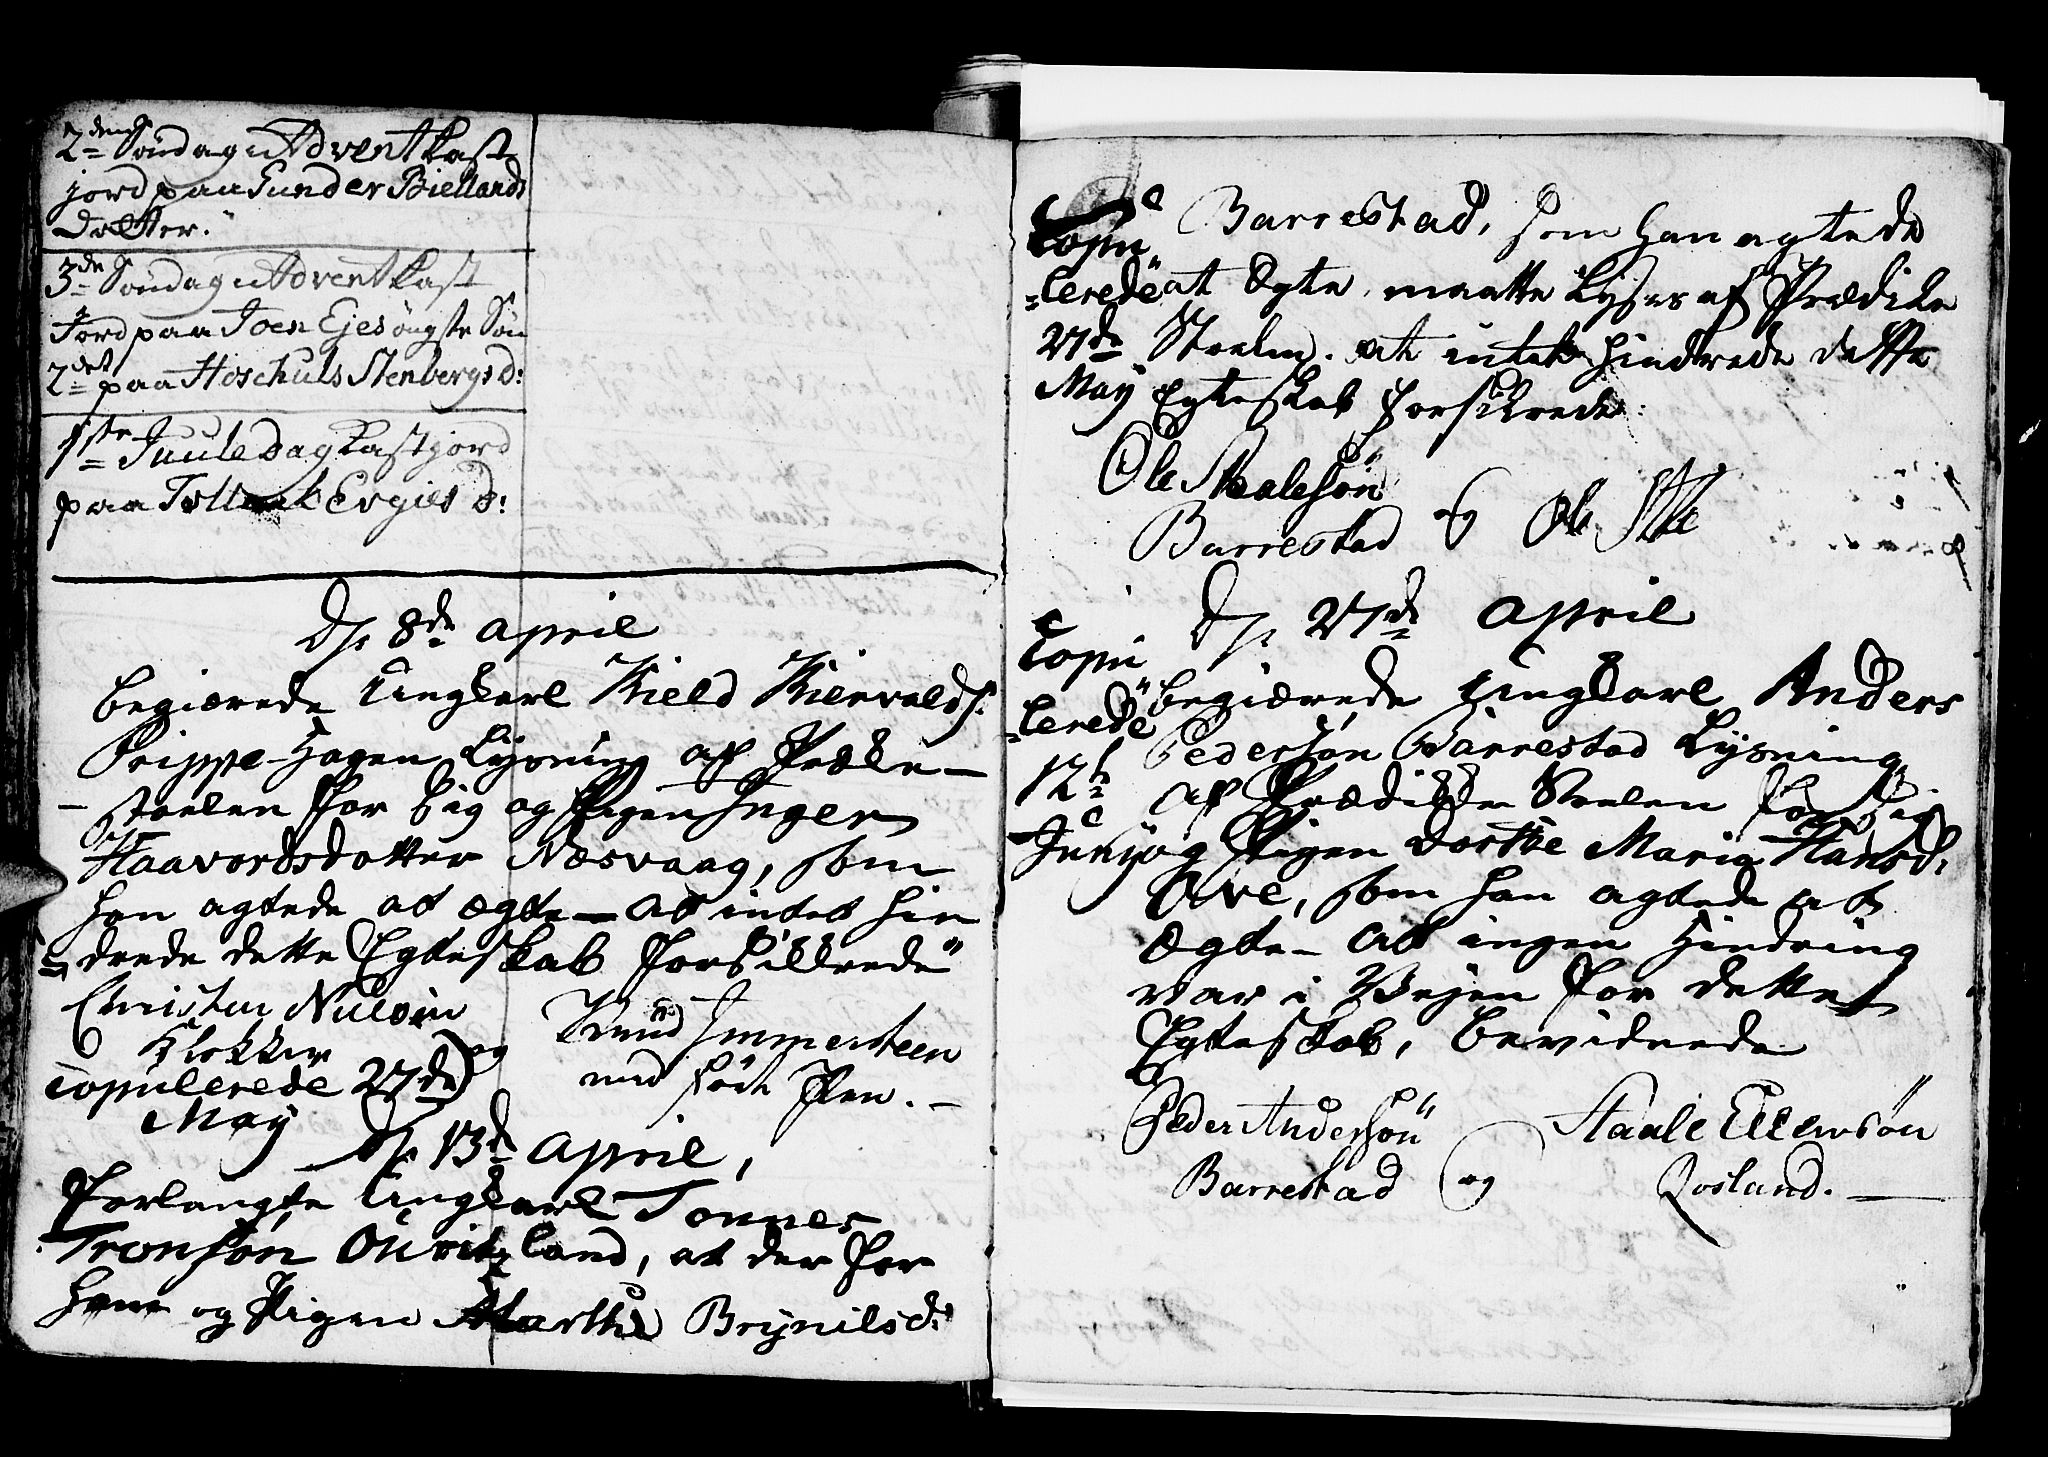 2den Søndag i Advent kast
jord paa Gunder Biellands
Datter.
3de Søndag i Advent kast
Jord paa Joen Ejes øngste Søn
2det paa Hoschuls Stenbergs d:
1ste Juule Dag kast jord
paa Tollak Evgies d:
D. 8de April
begiærede Ungkarl Kield Kiervalds.
Grippe-Hagen Lysning af Prædike-
stoelen for sig og Pigen Inger
Haavordsdotter Næsvaag, som
han agtede at ægte - at intet hin
drede dette Egteskab forsikkrede
Christen Nielsen
Klokker
og
Knud Immersteen
medført Pen. -
Copulerede 27de
May
D. 13de April,
forlangte Ungkarl Tønnes
Tronsøn Ourits land, at der for
ham og Pigen Marthe Brynilsd:
Barrestad, som han agtede
at Egte, maatte Lyses af Prædike
Stoelen. at intet hindrede dette
Egteskab forsikrede:
Copu
lerede
27de
May
Ole Staalesøn
Barrestad og Ole
D. 27de April
begiærede Ungkarl Anders
Pedersøn Barrestad Lysning
af Prædike Stoelen for Sig
og Pigen Dorthe Maria Hansd:
Ave, som han agtede at
Ægte - at ingen Hindring
var i Vejen for dette
Egteskab, bevidnede
Copu
lerede
12te
Junij
Peder Andersøn
Barrestad og
Staale Ellensøn
Rosland. -